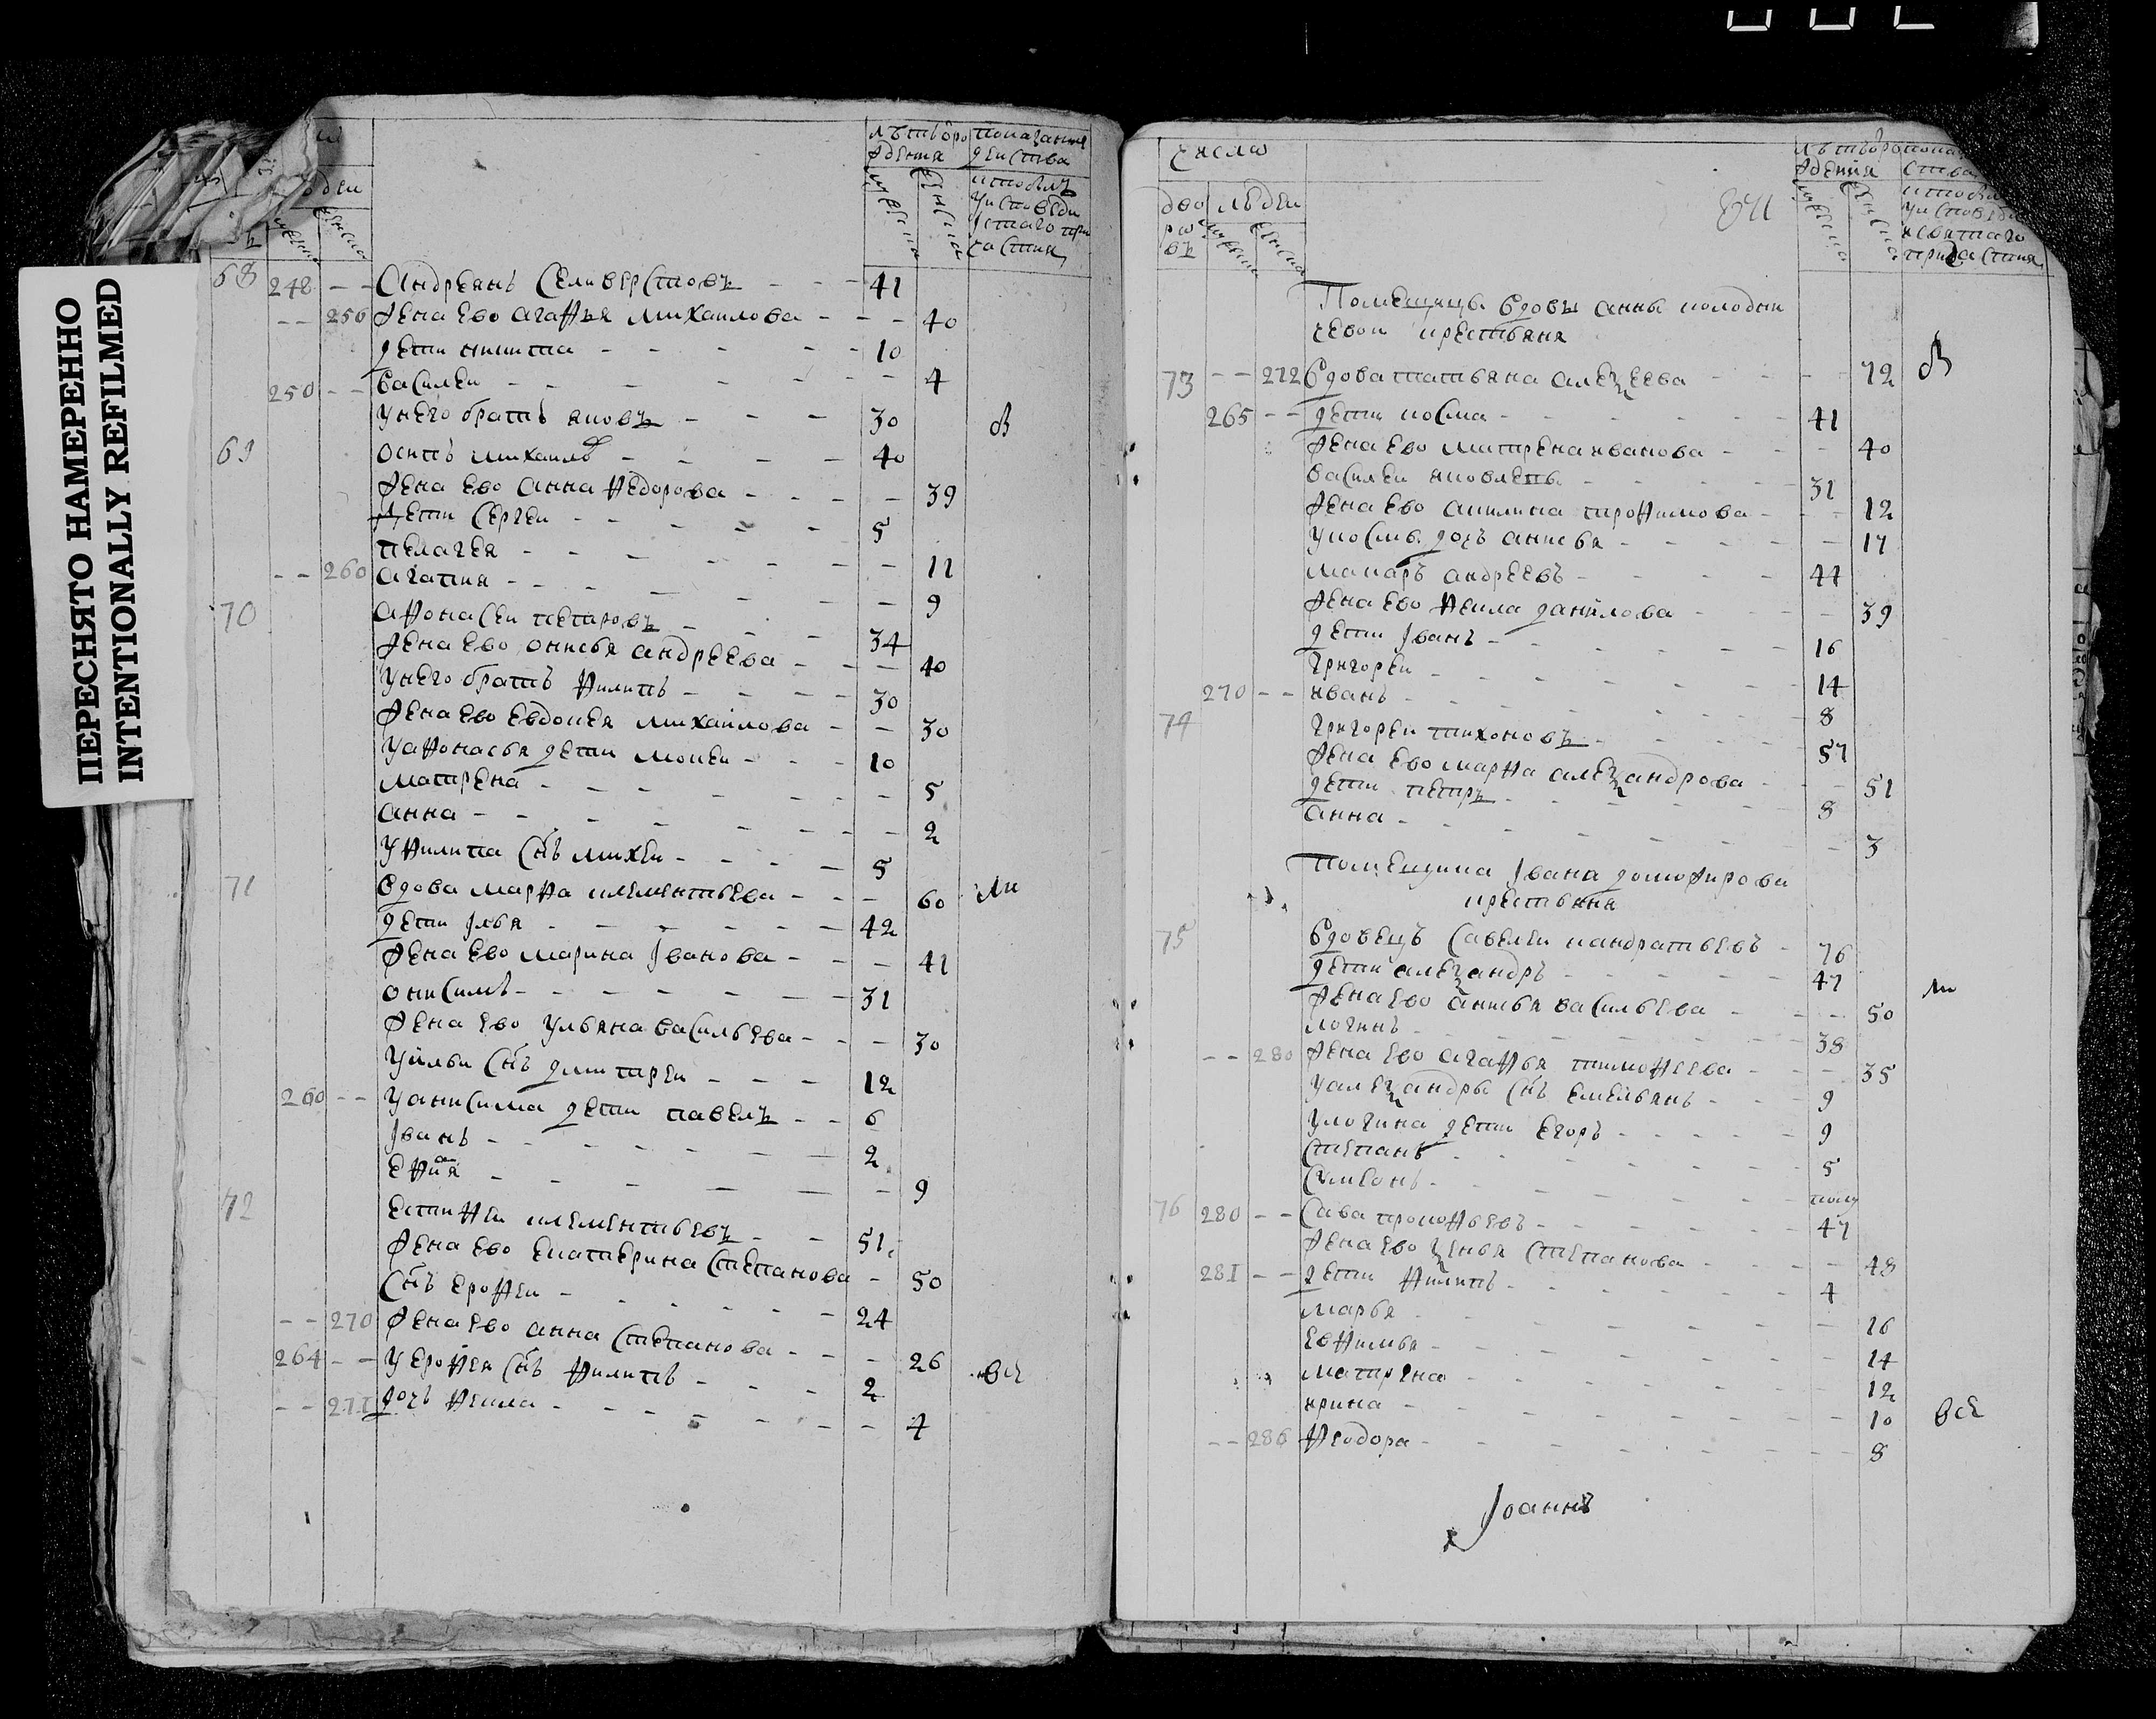 ПЕРЕСНЯТО НАМЕРЕННО
INTENTIONALLY REFILMED
лѣтъ о рождения
показание действа
кто былъ у исповеди и святаго причастия
68 248 -- Андреянъ Селиверстовъ 41
-- 256 жена ево агафья михаилова 40
дети никита 10
250 -- василеи 4
у него братъ яковъ 30
69 осипъ михаилов 40
жена ево анна федорова 39
дети Сергеи 5
пелагея 11
-- 260 агапия 9
70 афонасеи петровъ 34
жена ево онисья андреева 40
у него братъ филипъ 30
жена ево евдокея михаилова 30
у афонасья дети мокеи 10
матрена 5
анна 2
у филипа снъ михеи 5
71 вдова марфа клементьева 60
дети Илья 42
жена ево марина Иванова 41
онисимъ 31
жена ево ульяна васильева 30
у ильи снъ дмитреи 12
260 -- у анисима дети павелъ 6
Иванъ 2
9
72 естифеи клементьевъ 51
жена ево екатерина Степанова 50
Снъ ерофеи 24
-- 270 жена ево анна Степанова 26
264 -- у ерофея снъ филипъ 2
-- 271 дочь фекла 4
Число
дворовъ людеи
лѣтъ о рождения
кто былъ у исповеди и святаго причастия
Помещицы вдовы анны колодки
чевои крестьяня
73 -- 272 вдова татьяна алеѯеева 72
265 -- дети козма 41
жена ево матрена иванова 40
василеи яковлевъ 31
жена ево акилина трофимова 12
у космы дочь анисья 17
макаръ андреевъ 44
жена ево фекла данилова 39
дети Иванъ 16
григореи 14
270 -- иванъ 8
74 григореи тихоновъ 57
жена ево марфа алеѯандрова 51
дети петръ 8
анна 3
помещика Ивана доможирова
крестьяня
75 вдовецъ Савелеи кандратьевъ 76
дети алеѯандръ 47
жена ево анисья васильева 50
логинъ 38
-- 280 жена ево агафья тимофеева 35
у алеѯандры снъ емельянъ 9
у логина дети егоръ 9
Степанъ 5
Симеонъ
76 280 -- Сава прокофьевъ 47
жена ево ѯенья Степанова 48
281 -- дети филипъ 4
марья 16
евфимья 14
матрена 12
ирина 10
-- 286 феодора 8
все
Иоаннъ